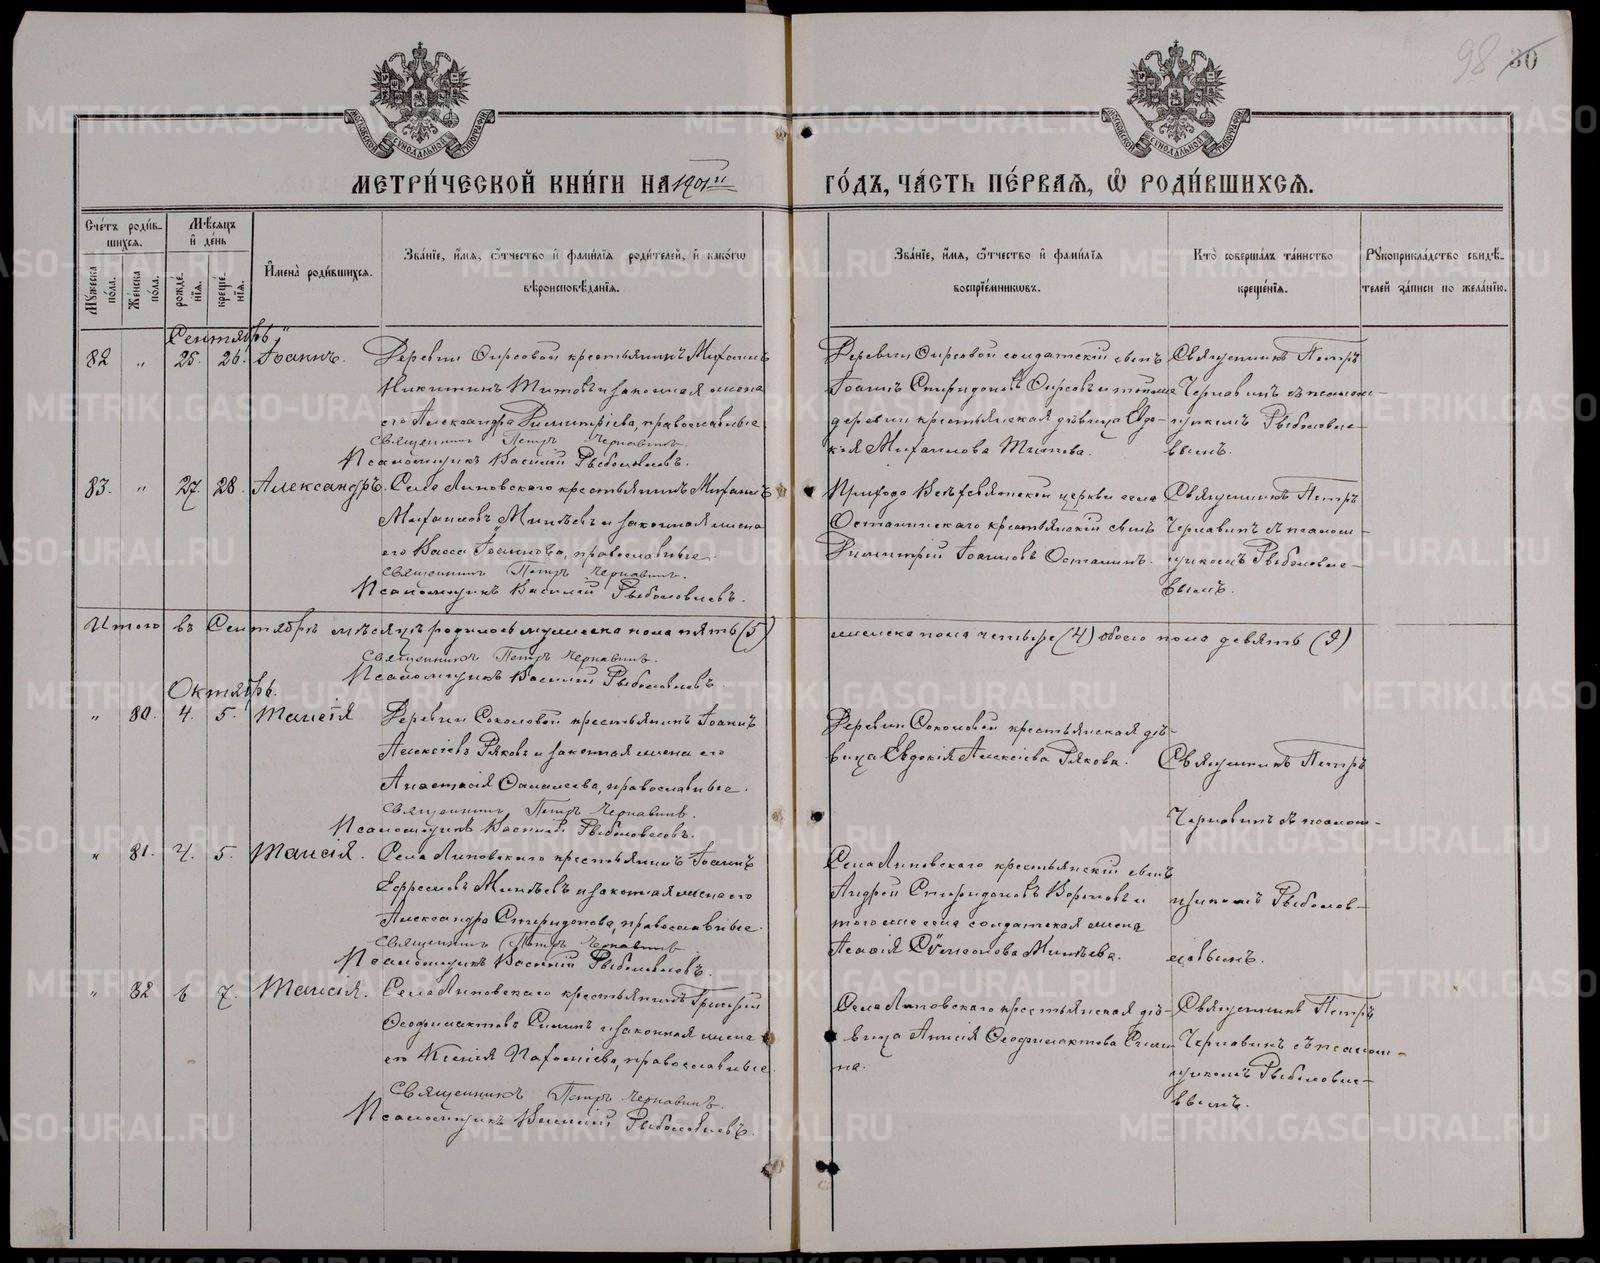 98 30
МЕТРИ́ЧЕСКОЙ КНИ́ГИ НА 1901й ГО́ДЪ, ЧА́СТЬ ПЕ́РВАѦ, Ѡ РОДИ́ВШИХСѦ.
Сче́тъ роди́в-
шихсѧ.
Мѣ́сѧцъ
и де́нь
Мꙋ́жеска по́ла.
Же́нска по́ла.
рожде́нїѧ.
креще́нїѧ.
Имена̀ роди́вшихсѧ.
Зва́нїе, и́мѧ, ѻ́тчество и фами́лїѧ роди́телей, и како́гѡ
вѣроисповѣ́данїѧ.
Зва́нїе, и́мѧ, ѻ́тчество и фами́лїѧ
воспрїе́мникѡвъ.
Кто̀ соверша́лъ та́инство
креще́нїѧ.
Рꙋкоприкла́дство свидѣ́-
телей за́писи по жела́нїю.
Сентябрь
82 " 25. 26. Іоаннъ.
Деревни Фирсовой крестьянинъ Михаилъ
Никитинъ Титовъ и законная жена
его Александра Димитріева, православные
Священникъ Петръ Чернавинъ.
Псаломщикъ Василій Рыболовлевъ.
Деревни Фирсовой солдатскій сынъ
Іоаннъ Спиридоновъ Фирсовъ и тоже
деревни крестьянская дѣвица Евдо-
кія Михаилова Титова.
Священникъ Петръ
Чернавинъ съ псалом-
щикомъ Рыболовле-
вымъ.
83. " 27 28. Александръ.
Села Липовского крестьянинъ Михаилъ
Михаиловъ Минѣевъ и законная жена
его Васса Іоаннова, православные.
Священникъ Петръ Чернавинъ.
Псаломщикъ Василій Рыболовлевъ.
Прихода церкви села
Останинскаго крестьянскій сынъ
Димитрій Іоанновъ Останинъ.
Священникъ Петръ
Чернавинъ съ псалом-
щикомъ Рыболовле-
вымъ.
Итого въ Сентябрѣ мѣсяцѣ родилось мужеска пола пять (5) женска пола четыре (4) обоего пола девять (9)
Священникъ Петръ Чернавинъ.
Псаломщикъ Василій Рыболовлевъ.
Октябрь.
" 80. 4. 5. Таисія
Деревни Соколовой крестьянинъ Іоаннъ
Алексіевъ Ряковъ и законная жена его
Анастасія, православные.
Священникъ Петръ Чернавинъ.
Псаломщикъ Василій Рыболовлевъ.
Деревни Соколовой крестьянская дѣ-
вица Евдокія Алексіева Рякова.
Священникъ Петръ
Чернавинъ съ псалом-
" 81. 4. 5. Таисія.
Села Липовского крестьянинъ Іоаннъ
Ефремовъ Минѣевъ и законная жена его
Александра Спиридонова, православные.
Священникъ Петръ Чернавинъ
Псаломщикъ Василій Рыболовлевъ.
Села Липовского крестьянскій сынъ
Андрей Спиридоновъ и
того же села солдатская жена
Минѣева.
щикомъ Рыболов-
левымъ.
" 82 6 7. Таисія.
Села Липовского крестьянинъ Григорій
Феофилактовъ Силинъ и законная жена
его Ксенія Пахоміева, православные
Священникъ Петръ Чернавинъ.
Псаломщикъ Василій Рыболовлевъ.
Села Липовского крестьянская дѣ-
вица Анисія Феофилактова Сили-
на.
Священникъ Петръ
Чернавинъ съ псалом-
щикомъ Рыболовле-
вымъ.
METRIKI.GASO-URAL.RU